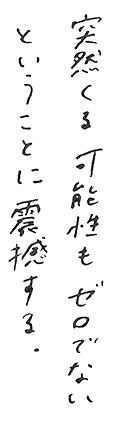 突然くる可能性もゼロでない
ということに震撼する.